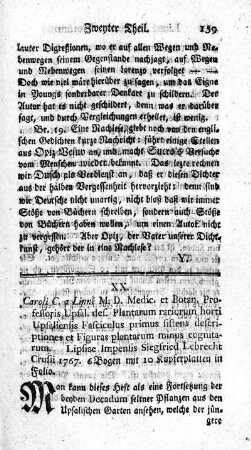 Zweyter Theil. 159
lauter Digressionen, wo er auf allen Wegen und Ne-
benwegen seinem Gegenstande nachjagt, auf Wegen
und Nebenwegen seinen Lorenzo verfolget —
Doch wie viel wäre hierüber zu sagen, um das Eigne
in Youngs sonderbarer Denkart zu schildern. Der
Autor hat es nicht geschildert, denn was er darüber
sagt, und durch Vergleichungen erheitet, ist wenig.
Br. 19. Eine Nachlese, giebt noch von den eng-
lischen Gedichten kurz Nachricht: führet einige Stellen
aus Opiz Vesuv an, und macht Sucro's Versuche
vom Menschen wieder bekannt. Das letzte rechnen
wir Dusch als Verdienst an, daß er diesen Dichter
aus der halben Vergessenheit hervorzieht: denn sind
wir Deutsche nicht unartig, nicht bloß daß wir immer
Stöße von Büchern schreiben, sondern auch Stöße
von Büchern haben wollen, um einen Autor nicht
zu vergessen. Aber Opiz, der Vater unserer Dicht-
kunst, gehört der in eine Nachlese?
Y.
XX
Caroli C. a Linné M. D. Medic. et Botan. Pro-
fessoris Upsal. des. Plantarum rariorum horti
Upsaliensis Fasciculus primus sistens descri-
ptiones et Figuras plantarum minus cognita-
rum. Lipsiae Impensis Siegfried Lebrecht
Crusii 1767. 6 Bogen mit 10 Kupferplatten in
Folio.
Man kann dieses Heft als eine Fortsetzung der
beyden Decadum seltner Pflanzen aus den
Upsalischen Garten ansehen, welche der jün-
gere